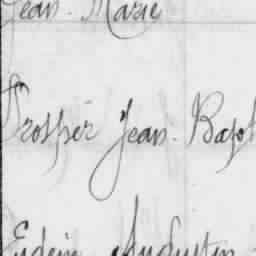 Jean-Marie
Prosper Jean-Bapt
Augustin